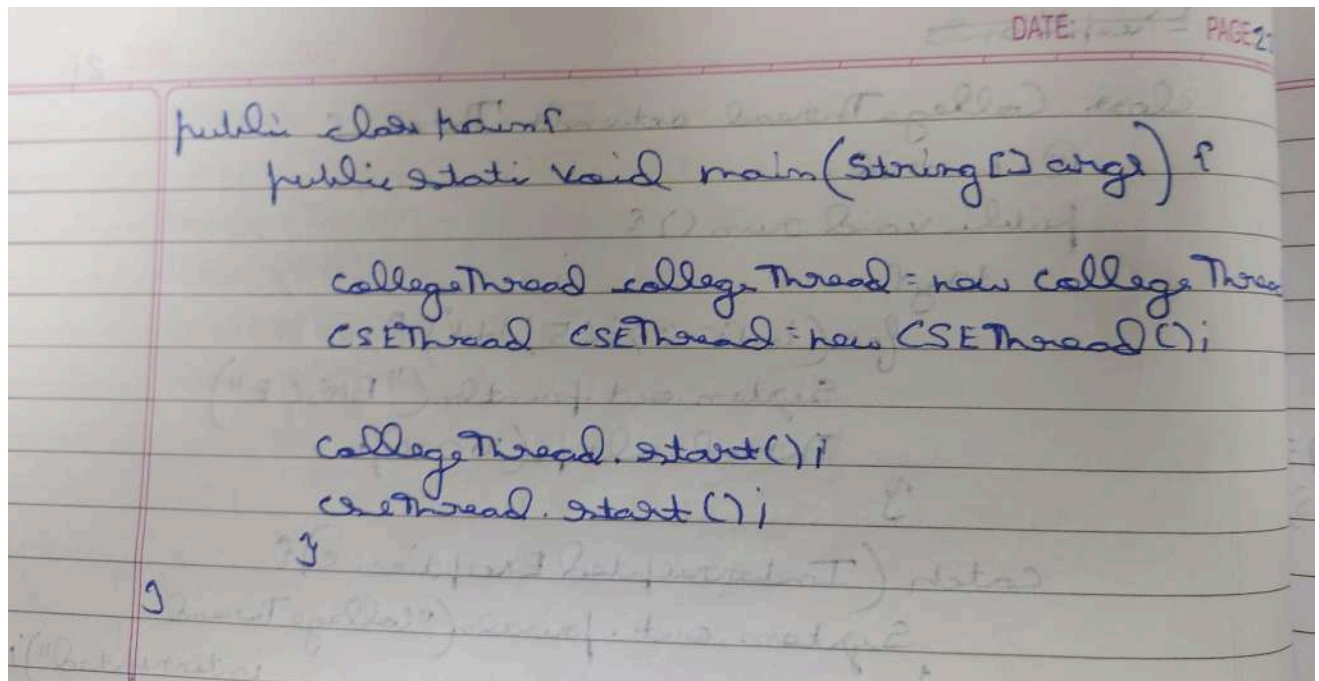 DATE: PAGE 2
public class main{
public static void main(String[] args) {
collegeThread collegeThread = new CollegeThrea
CSEThread CSEThread = new CSEThread();
collegeThread.start();
cseThread.start();
}
}